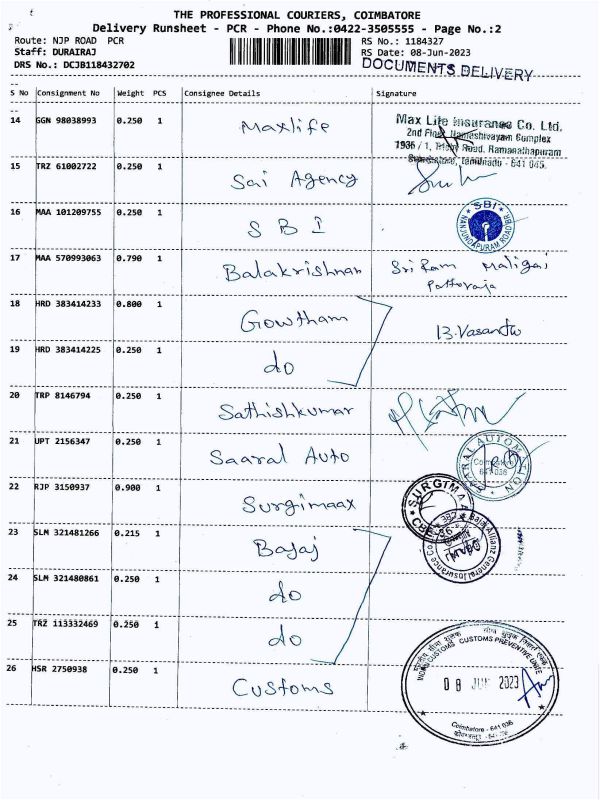 THE PROFESSIONAL COURIERS, COIMBATORE
Delivery Runsheet - PCR - Phone No.:0422-3505555 - Page No.:2
Route: NJP ROAD PCR
RS No.: 1184327
Staff: DURAIRAJ
RS Date: 08-Jun-2023
DRS No.: DCJB118432702
DOCUMENTS DELIVERY
S No Consignment No Weight PCS Consignee Details Signature
14 GGN 98038993 0.250 1 Maxlife
Max Life Insurance Co. Ltd.
2nd Floor, Nameshivayam Complex
1936 / 1, Trichy Road, Ramanathapuram
Coimbatore, Tamilnadu - 641 045.
15 TRZ 61002722 0.250 1 Sai Agency
16 MAA 101209755 0.250 1 S B I
SBI
NANJUNDAPURAM ROAD BR.
17 MAA 570993063 0.790 1 Balakrishnan Sri Ram Maligai
Pattoraja
18 HRD 383414233 0.800 1 Gowtham B.Vasantu
19 HRD 383414225 0.250 1 do
20 TRP 8146794 0.250 1 Sathishkumar
21 UPT 2156347 0.250 1 Saaral Auto
SAARAL AUTOMATION
641 036
22 RJP 3150937 0.900 1 Surgimaax
SURGIMAA
CBE
23 SLM 321481266 0.215 1 Bajaj
Bajaj Allianz General Insurance Co.
24 SLM 321480861 0.250 1 do
25 TRZ 113332469 0.250 1 do
26 HSR 2750938 0.250 1 Customs
INDIAN CUSTOMS CUSTOMS PREVENTIVE UNIT
08 JUN 2023
Coimbatore - 641 036